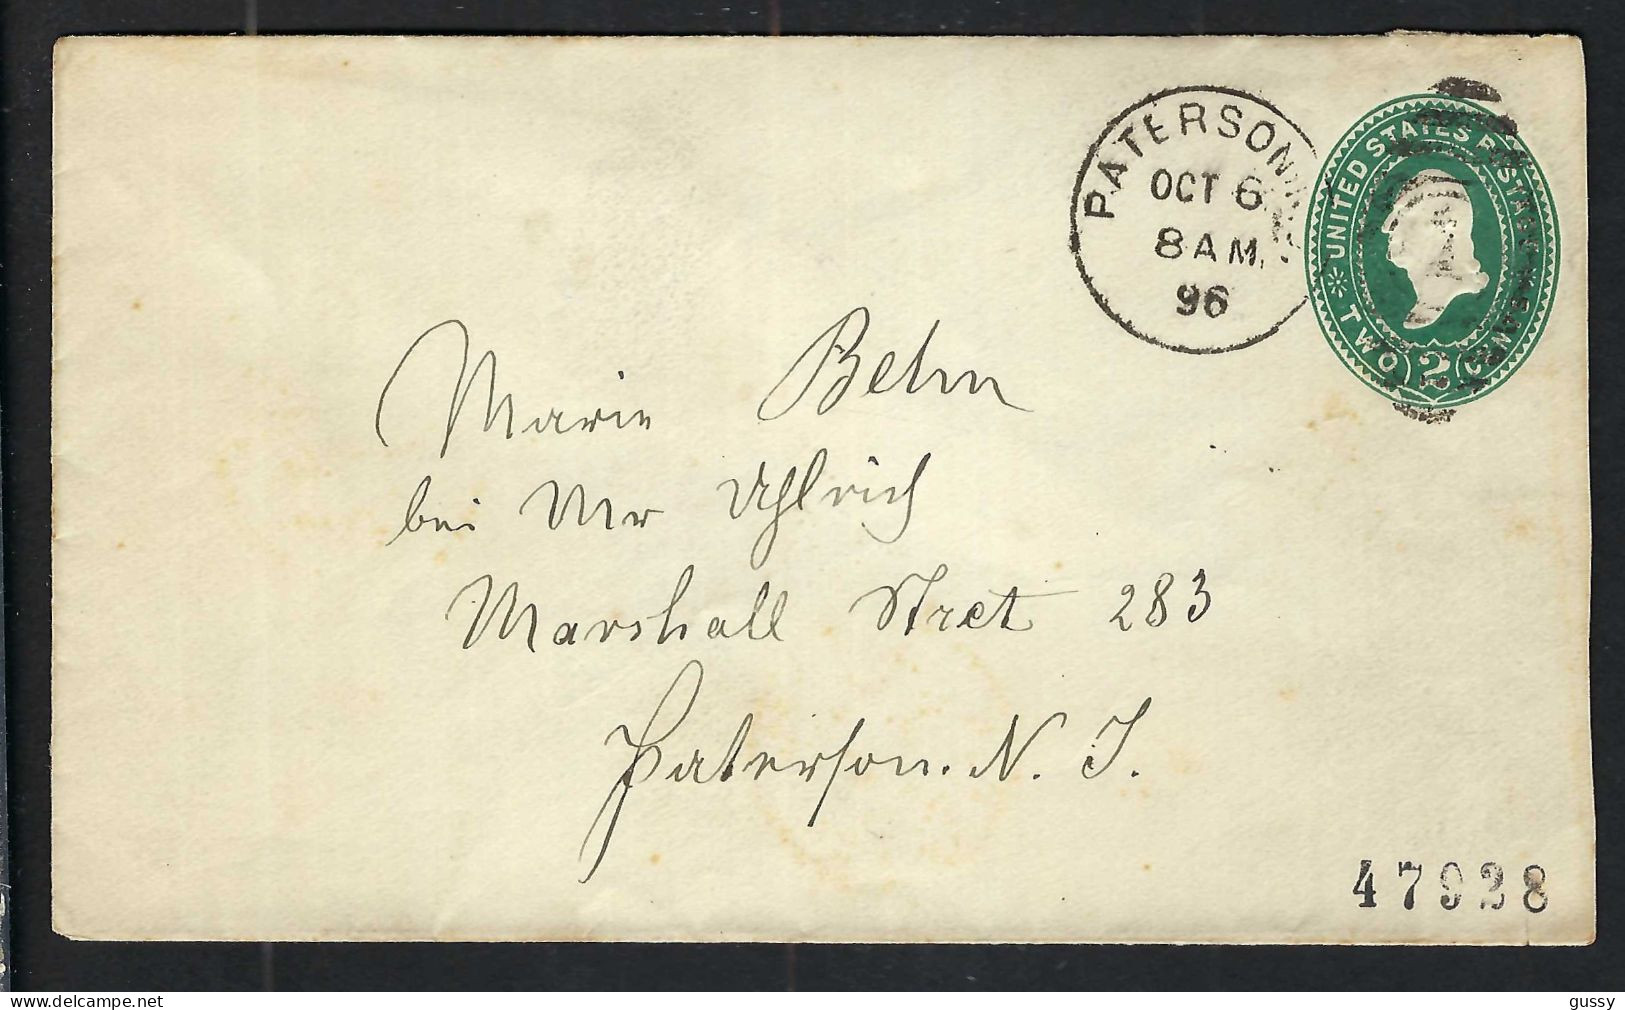 PATERSON
OCT 6
8 AM.
96
UNITED STATES POSTAGE
TWO 2 CENTS
Marie Behn
bei Mr Uhlrich
Marshall Stret 283
Paterson. N. J.
47928
gussy